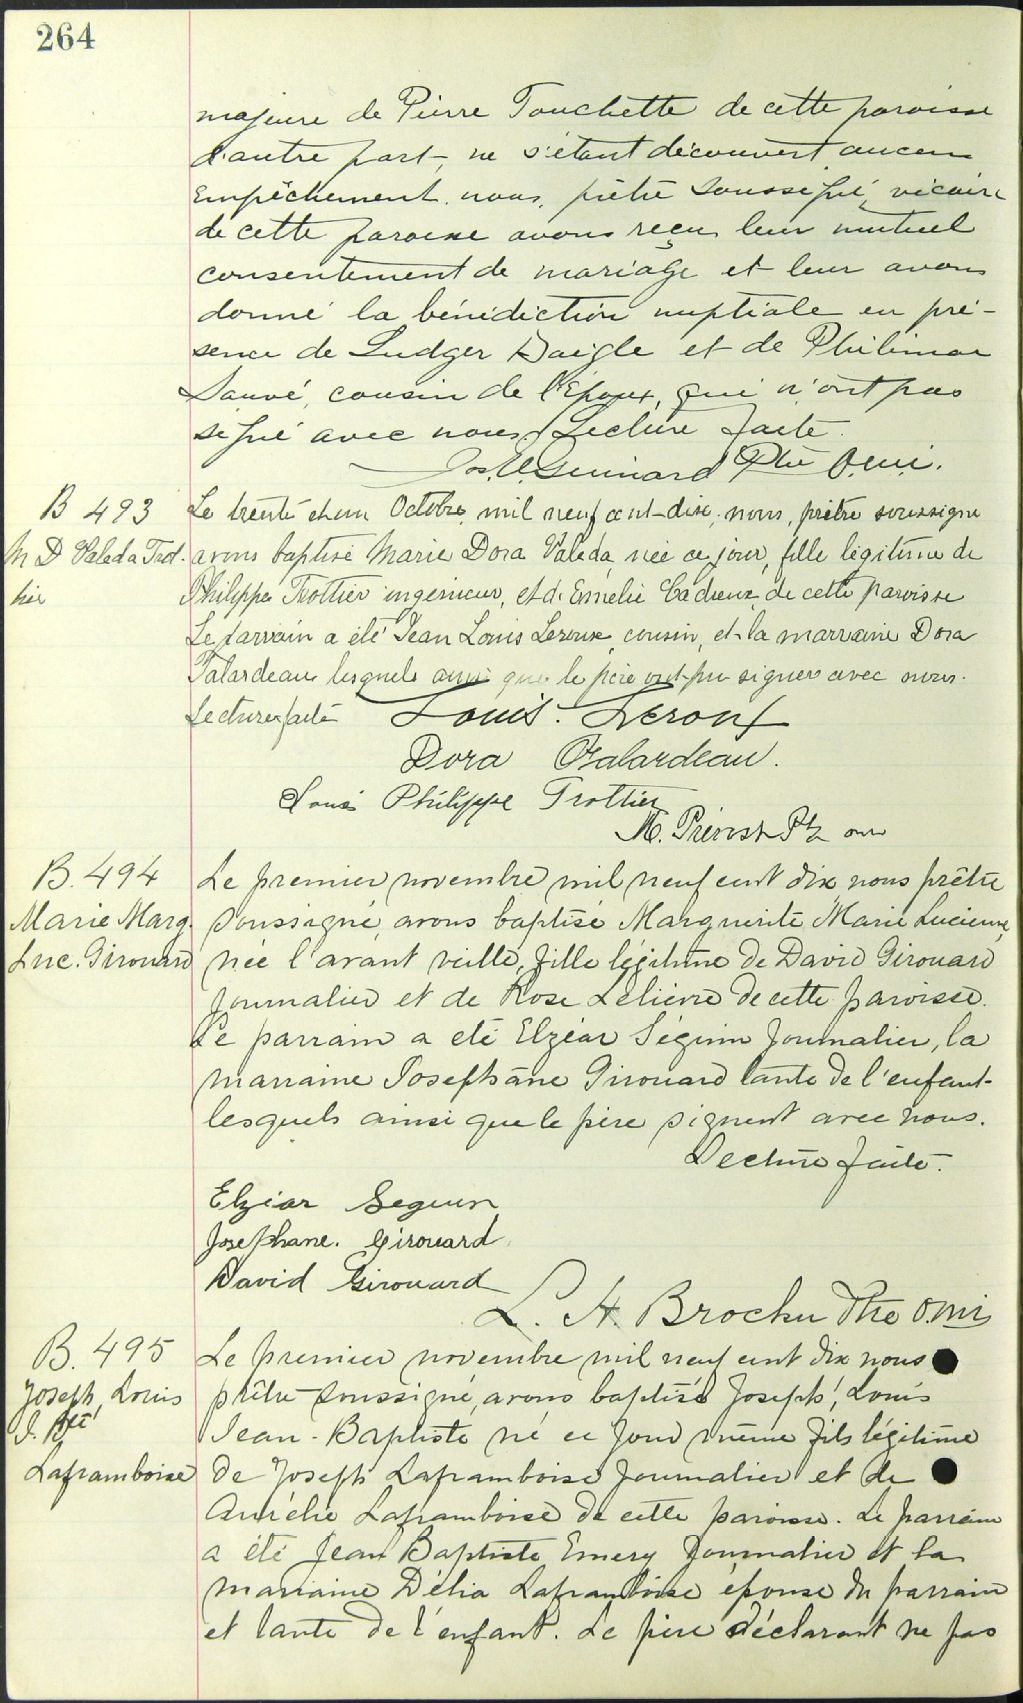 264
majeure de Pierre Touchette de cette paroisse
d'autre part, ne s'étant découvert aucun
Empêchement, nous, prêtre soussigné, vicaire
de cette paroisse avons reçu leur mutuel
consentement de mariage et leur avons
donné la bénédiction nuptiale en pré-
sence de Ludger Daigle et de
Sauvé, cousin de l'Époux, qui n'ont pas
signé avec nous. Lecture faite.
Guinard Ptre O.m.i.
B 493
M D Valeda Trot-
tier
Le trente et un Octobre mil neuf cent-dix, nous, prêtre soussigné
avons baptisé Marie Dora Valeda, née ce jour, fille légitime de
Philippe Trottier ingénieur, et d'Emelie Cadieux de cette paroisse
Le parrain a été Jean Louis Leroux, cousin, et la marraine Dora
Talardeau lesquels ainsi que le père ont pu signer avec nous.
Lecture faite
Louis Leroux
Dora Talardeau.
Louis Philippe Trottier
M. Prévost Ptre omi
B. 494
Marie Marg.
Luc. Girouard
Le premier novembre mil neuf cent dix nous prêtre
soussigné, avons baptisé Marguerite Marie Lucienne,
née l'avant veille, fille légitime de David Girouard
Journalier et de Rose Lelièvre de cette paroisse.
Le parrain a été Elzéar Séguin Journalier, la
marraine Josephane Girouard tante de l'enfant
lesquels ainsi que le père signent avec nous.
Lecture faite.
Elzéar Seguin
Josephane. Girouard
David Girouard
L. H. Brochu Ptre O.m.i
B. 495
Joseph, Louis
J. Bte
Laframboise
Le premier novembre mil neuf cent dix nous
prêtre soussigné, avons baptisé Joseph, Louis
Jean-Baptiste né ce jour même fils légitime
de Joseph Laframboise Journalier et de
Aurélie Laframboise de cette paroisse. Le parrain
a été Jean Baptiste Emery Journalier et la
marraine Délia Laframboise épouse du parrain
et tante de l'enfant. Le père déclarant ne pas